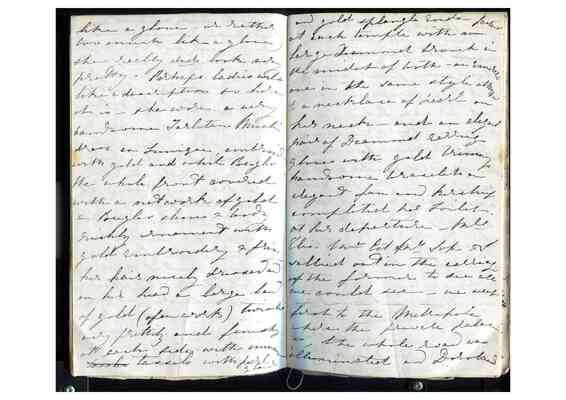 like a glove - or rather
two minutes like a glove
she really did look very
pretty - Perhaps ladies will
like a description so here
it is - she wore a very
handsome Tarlatan Muslin
dress en Tunique, embroid
with gold and white Bugle
the whole front covered
with a network of gold
& Bugles shoes & body
richly ornamented with
gold embroidery & frin
her hair nicely dressed
on her head a large band
of gold (open work)
very prettily and finished
at each side with
tassels with pearls
and gold spangle ends
at each temple with an
large Diamond brooch in
the midst of both - an
one in the same style
& a necklace of pearl on
her neck - and an elegant
pair of Diamond earrings
gloves with gold trimmg
handsome bracelets a
elegant fan and
completed her toilet.
at her departure
Col
sallied out in the carriage
of the former to see all
we could see - we went
first to the Metropole
where the private palace
is the whole road was
illuminated and